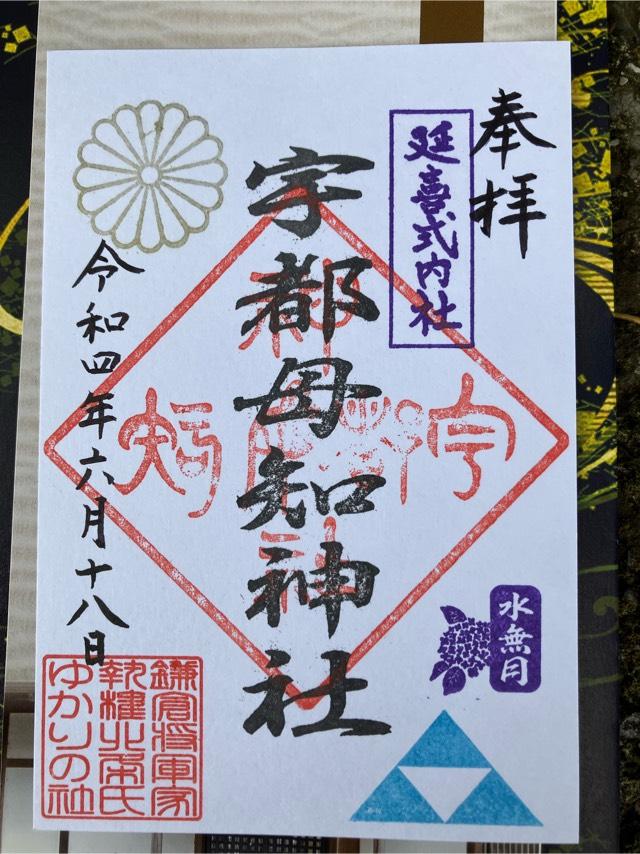 奉拝
延喜式内社
宇都母知神社
令和四年六月十八日
水無月
鎌倉将軍家
執権北条氏
ゆかりの社